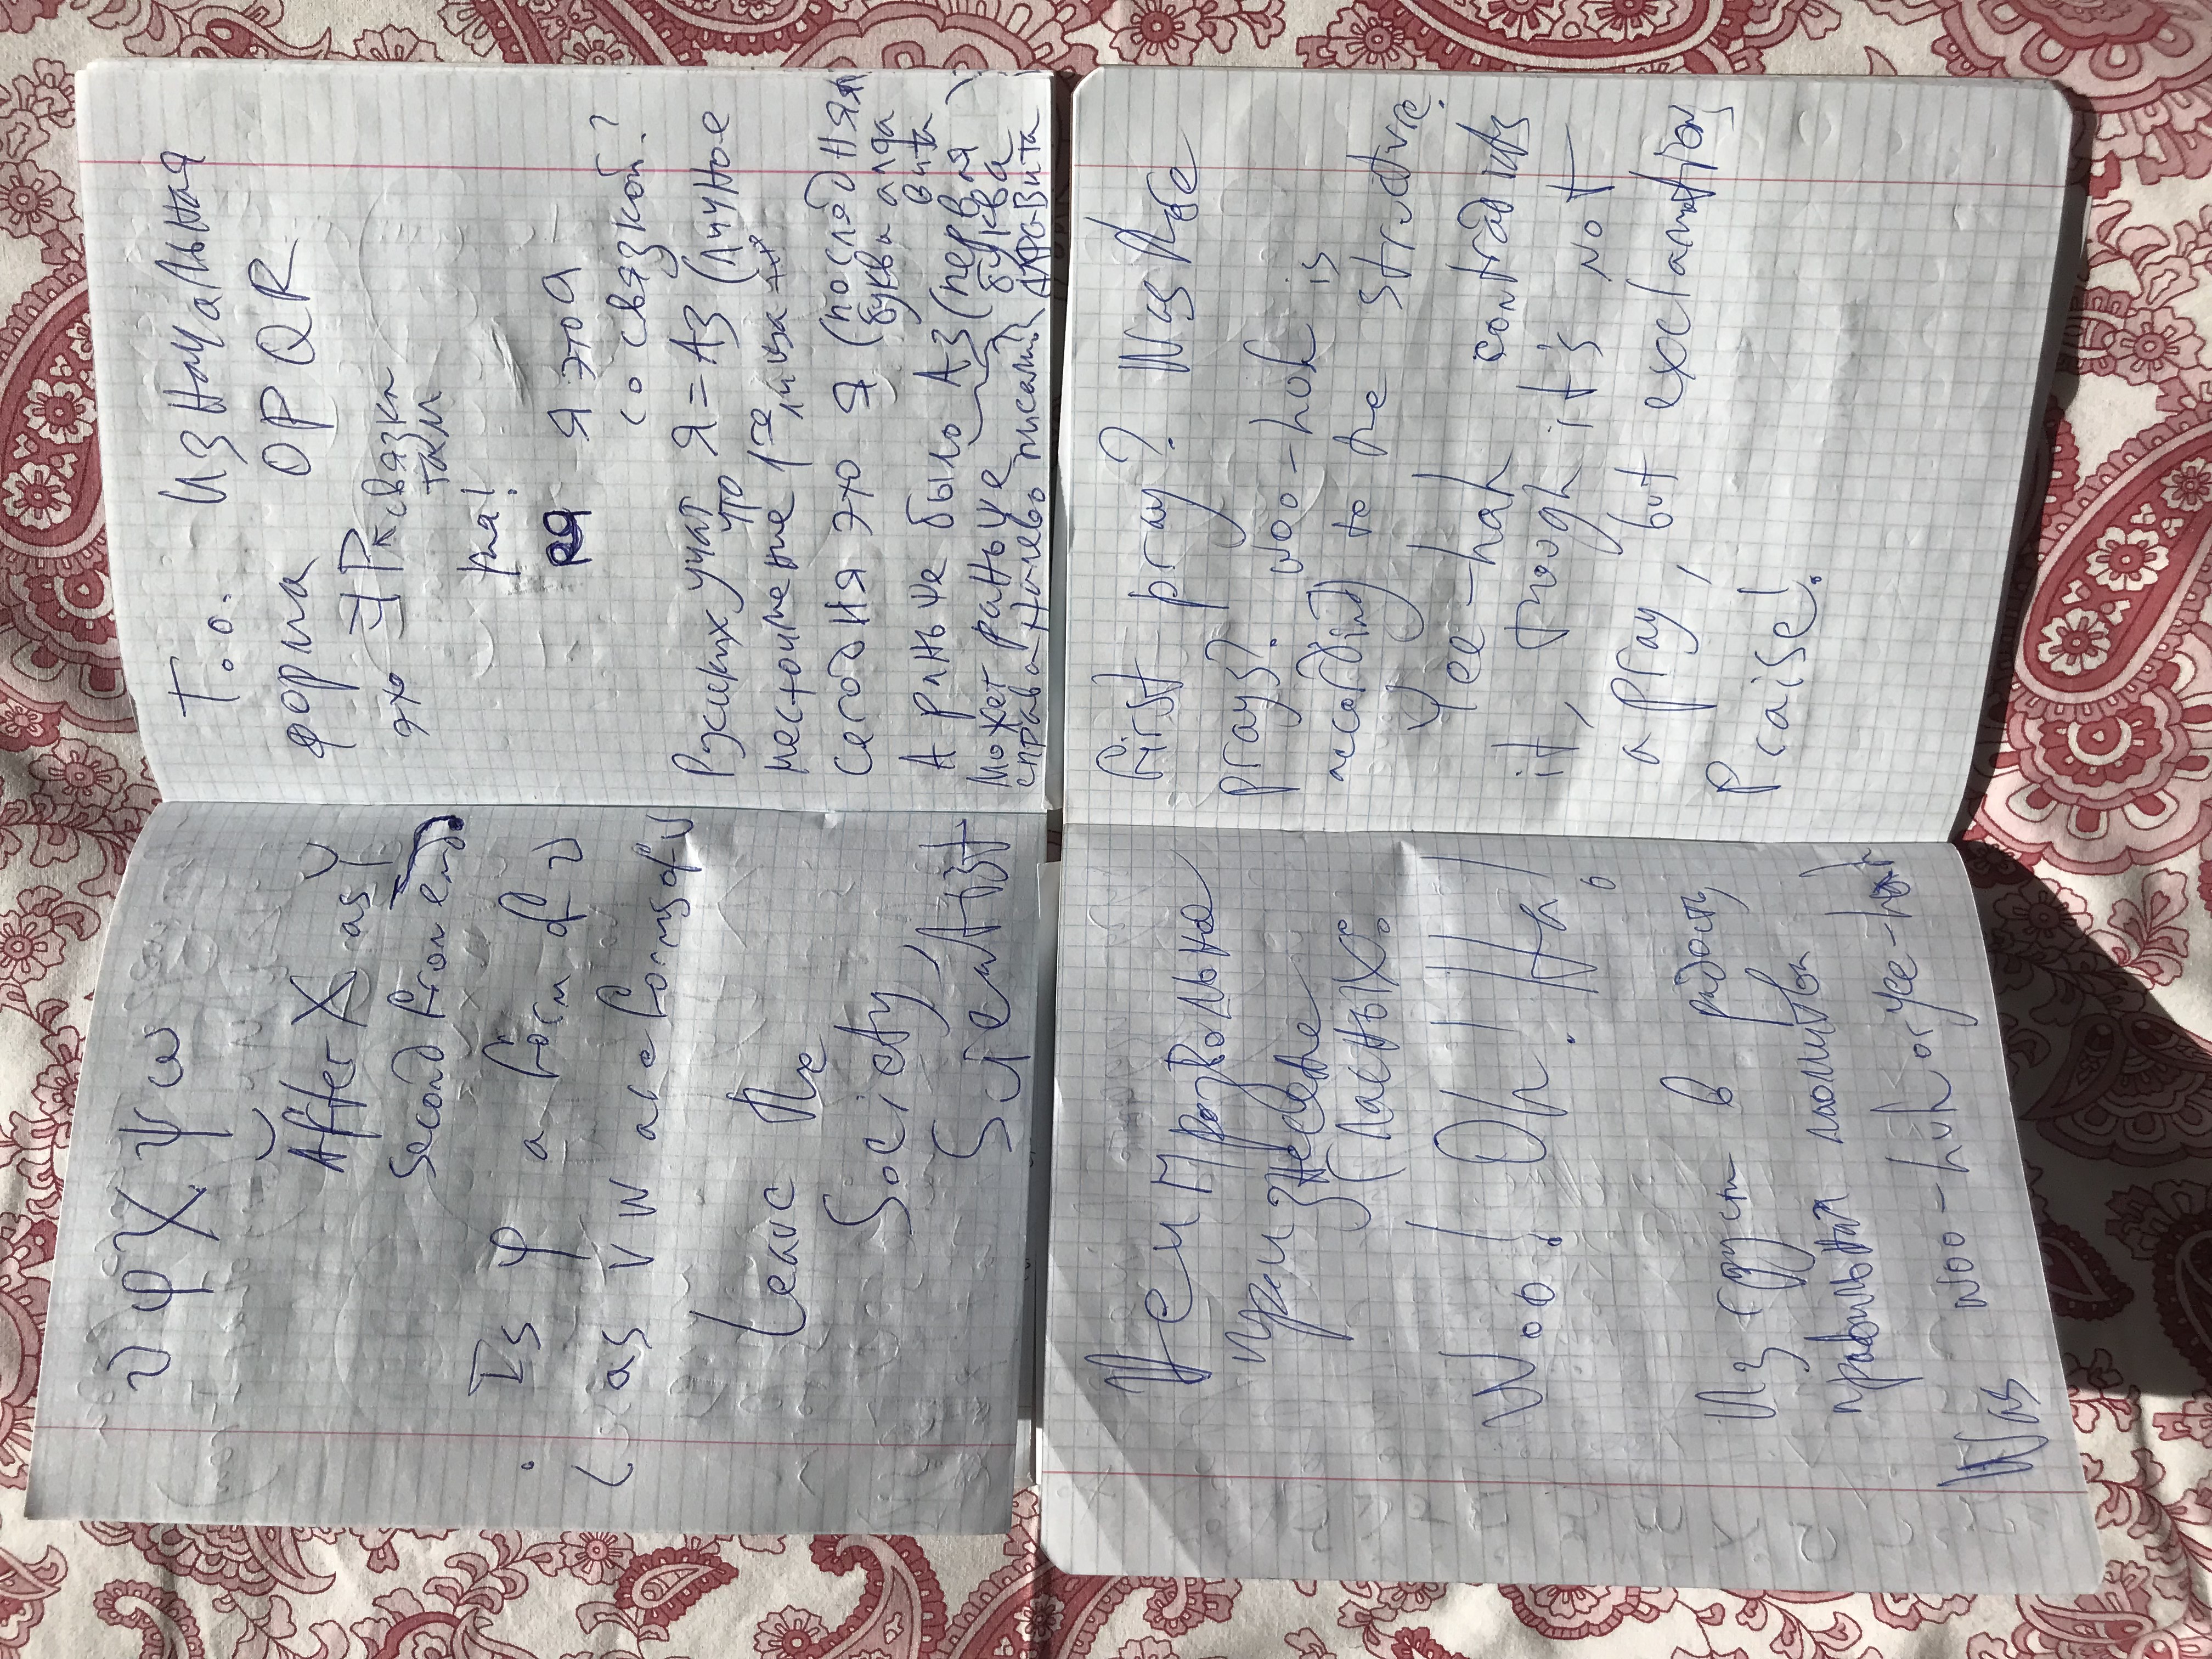 υ φ χ ψ ω
After X as Y
second from end.
Is φ a form of υ
as V W are forms of U
Leave the
Society,
Scientist
Т.о. Изначальная
форма OPQR
это ƎP связка
там
Я это Я
со связкой?
Русских учат что Я = АЗ (личное
местоимение 1го лица
сегодня это Я (последняя
буква алфа
вита
А раньше было АЗ (первая
Может раньше буква
справа налево писали? алфавита
произнесение
гласных:
Woo! Oh! Ha!
Из грусти в радость
правильная молитва
Was woo-huh or yee-hah
first pray? Was there
prays? woo-hoh is
according to the structure.
Yee-hah contradicts
it, though it's not
a pray, but exclamation,
Praise!